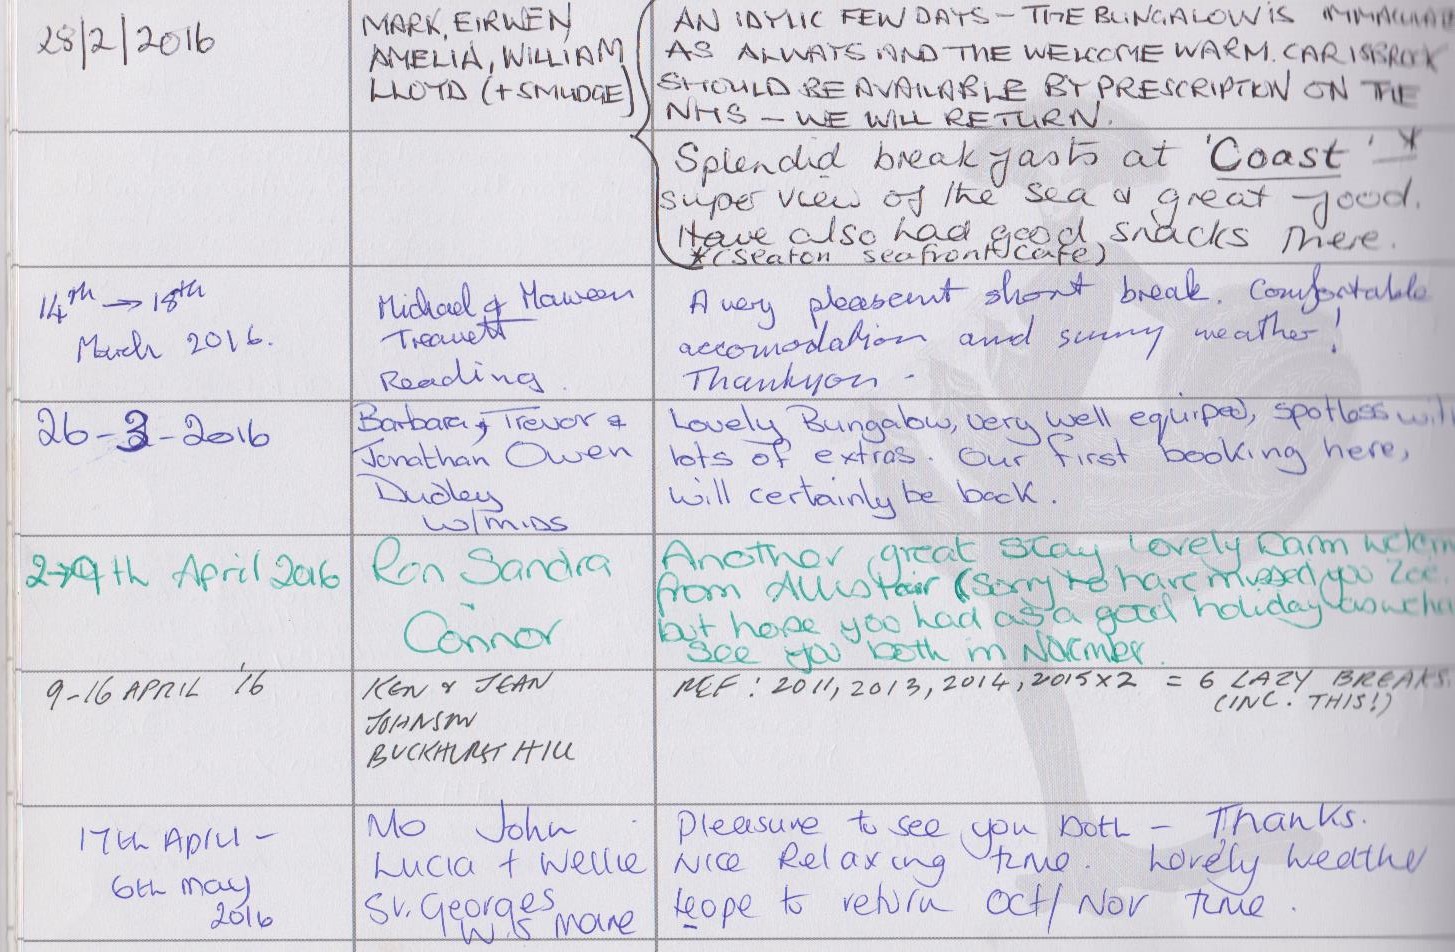 28/2/2016
MARK, EIRWEN
AMELIA, WILLIAM
LLOYD (+ SMUDGE)
AN IDYLIC FEW DAYS - THE BUNGALOW IS
AS ALWAYS AND THE WELCOME WARM. CARISBROOK
SHOULD BE AVAILABLE BY PRESCRIPTION ON THE
NHS - WE WILL RETURN.
Splendid breakfasts at 'Coast' *
super view of the sea & great food.
Have also had good snacks there.
*(Seaton seafront cafe)
14th → 18th
March 2016.
Michael & Maureen
Reading.
A very pleasent short break. Comfortable
accomodation and sunny weather!
Thankyou -
26-3-2016
Barbara, Trevor &
Jonathan Owen
Dudley
W/MIDS
Lovely Bungalow, very well equiped, spotless with
lots of extras. Our first booking here,
will certainly be back.
2→9th April 2016
Ron Sandra
Connor
Another great stay Lovely warm
from Allistair (Sorry to have missed you Zoe
but hope you had as a good holiday
See you both in
9-16 APRIL '16
KEN & JEAN
JOHNSON
BUCKHURST HILL
REF: 2011, 2013, 2014, 2015 x 2 = 6 LAZY BREAKS
(INC. THIS!)
17th April -
6th May
2016
Mo John
Lucia + Wellie
St. Georges
W. S Mare
Pleasure to see you both - Thanks.
Nice Relaxing time. Lovely weather
Hope to return Oct/Nov time.